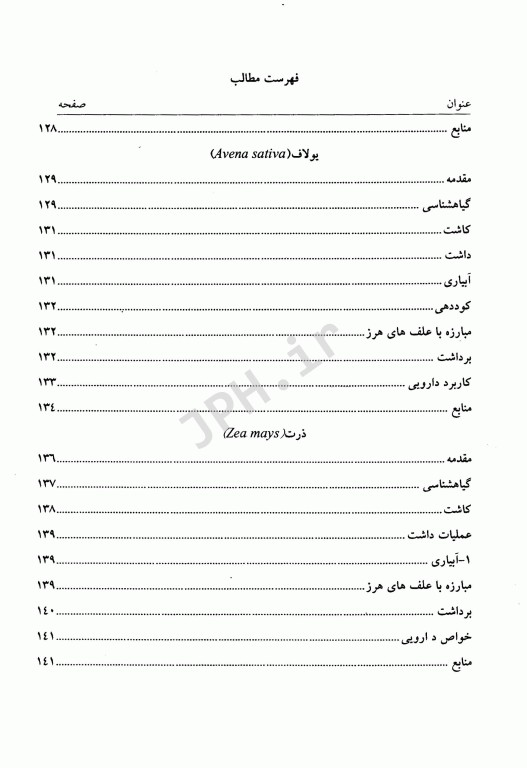 فهرست مطالب
عنوان صفحه
منابع ۱۲۸
یولاف(Avena sativa)
مقدمه ۱۲۹
گیاهشناسی ۱۲۹
کاشت ۱۳۱
داشت ۱۳۱
آبیاری ۱۳۱
کوددهی ۱۳۲
مبارزه با علف های هرز ۱۳۲
برداشت ۱۳۲
کاربرد دارویی ۱۳۳
منابع ۱۳٤
ذرت(Zea mays)
مقدمه ۱۳٦
گیاهشناسی ۱۳۷
کاشت ۱۳۸
عملیات داشت ۱۳۹
۱-آبیاری ۱۳۹
مبارزه با علف های هرز ۱۳۹
برداشت ۱٤۰
خواص د ارویی ۱٤۱
منابع ۱٤۱
JPH.ir